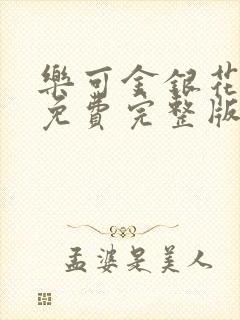 樂可金銀花
免費完整版
孟婆是美人